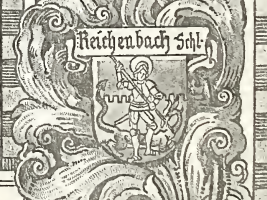 Reichenbach Schl.